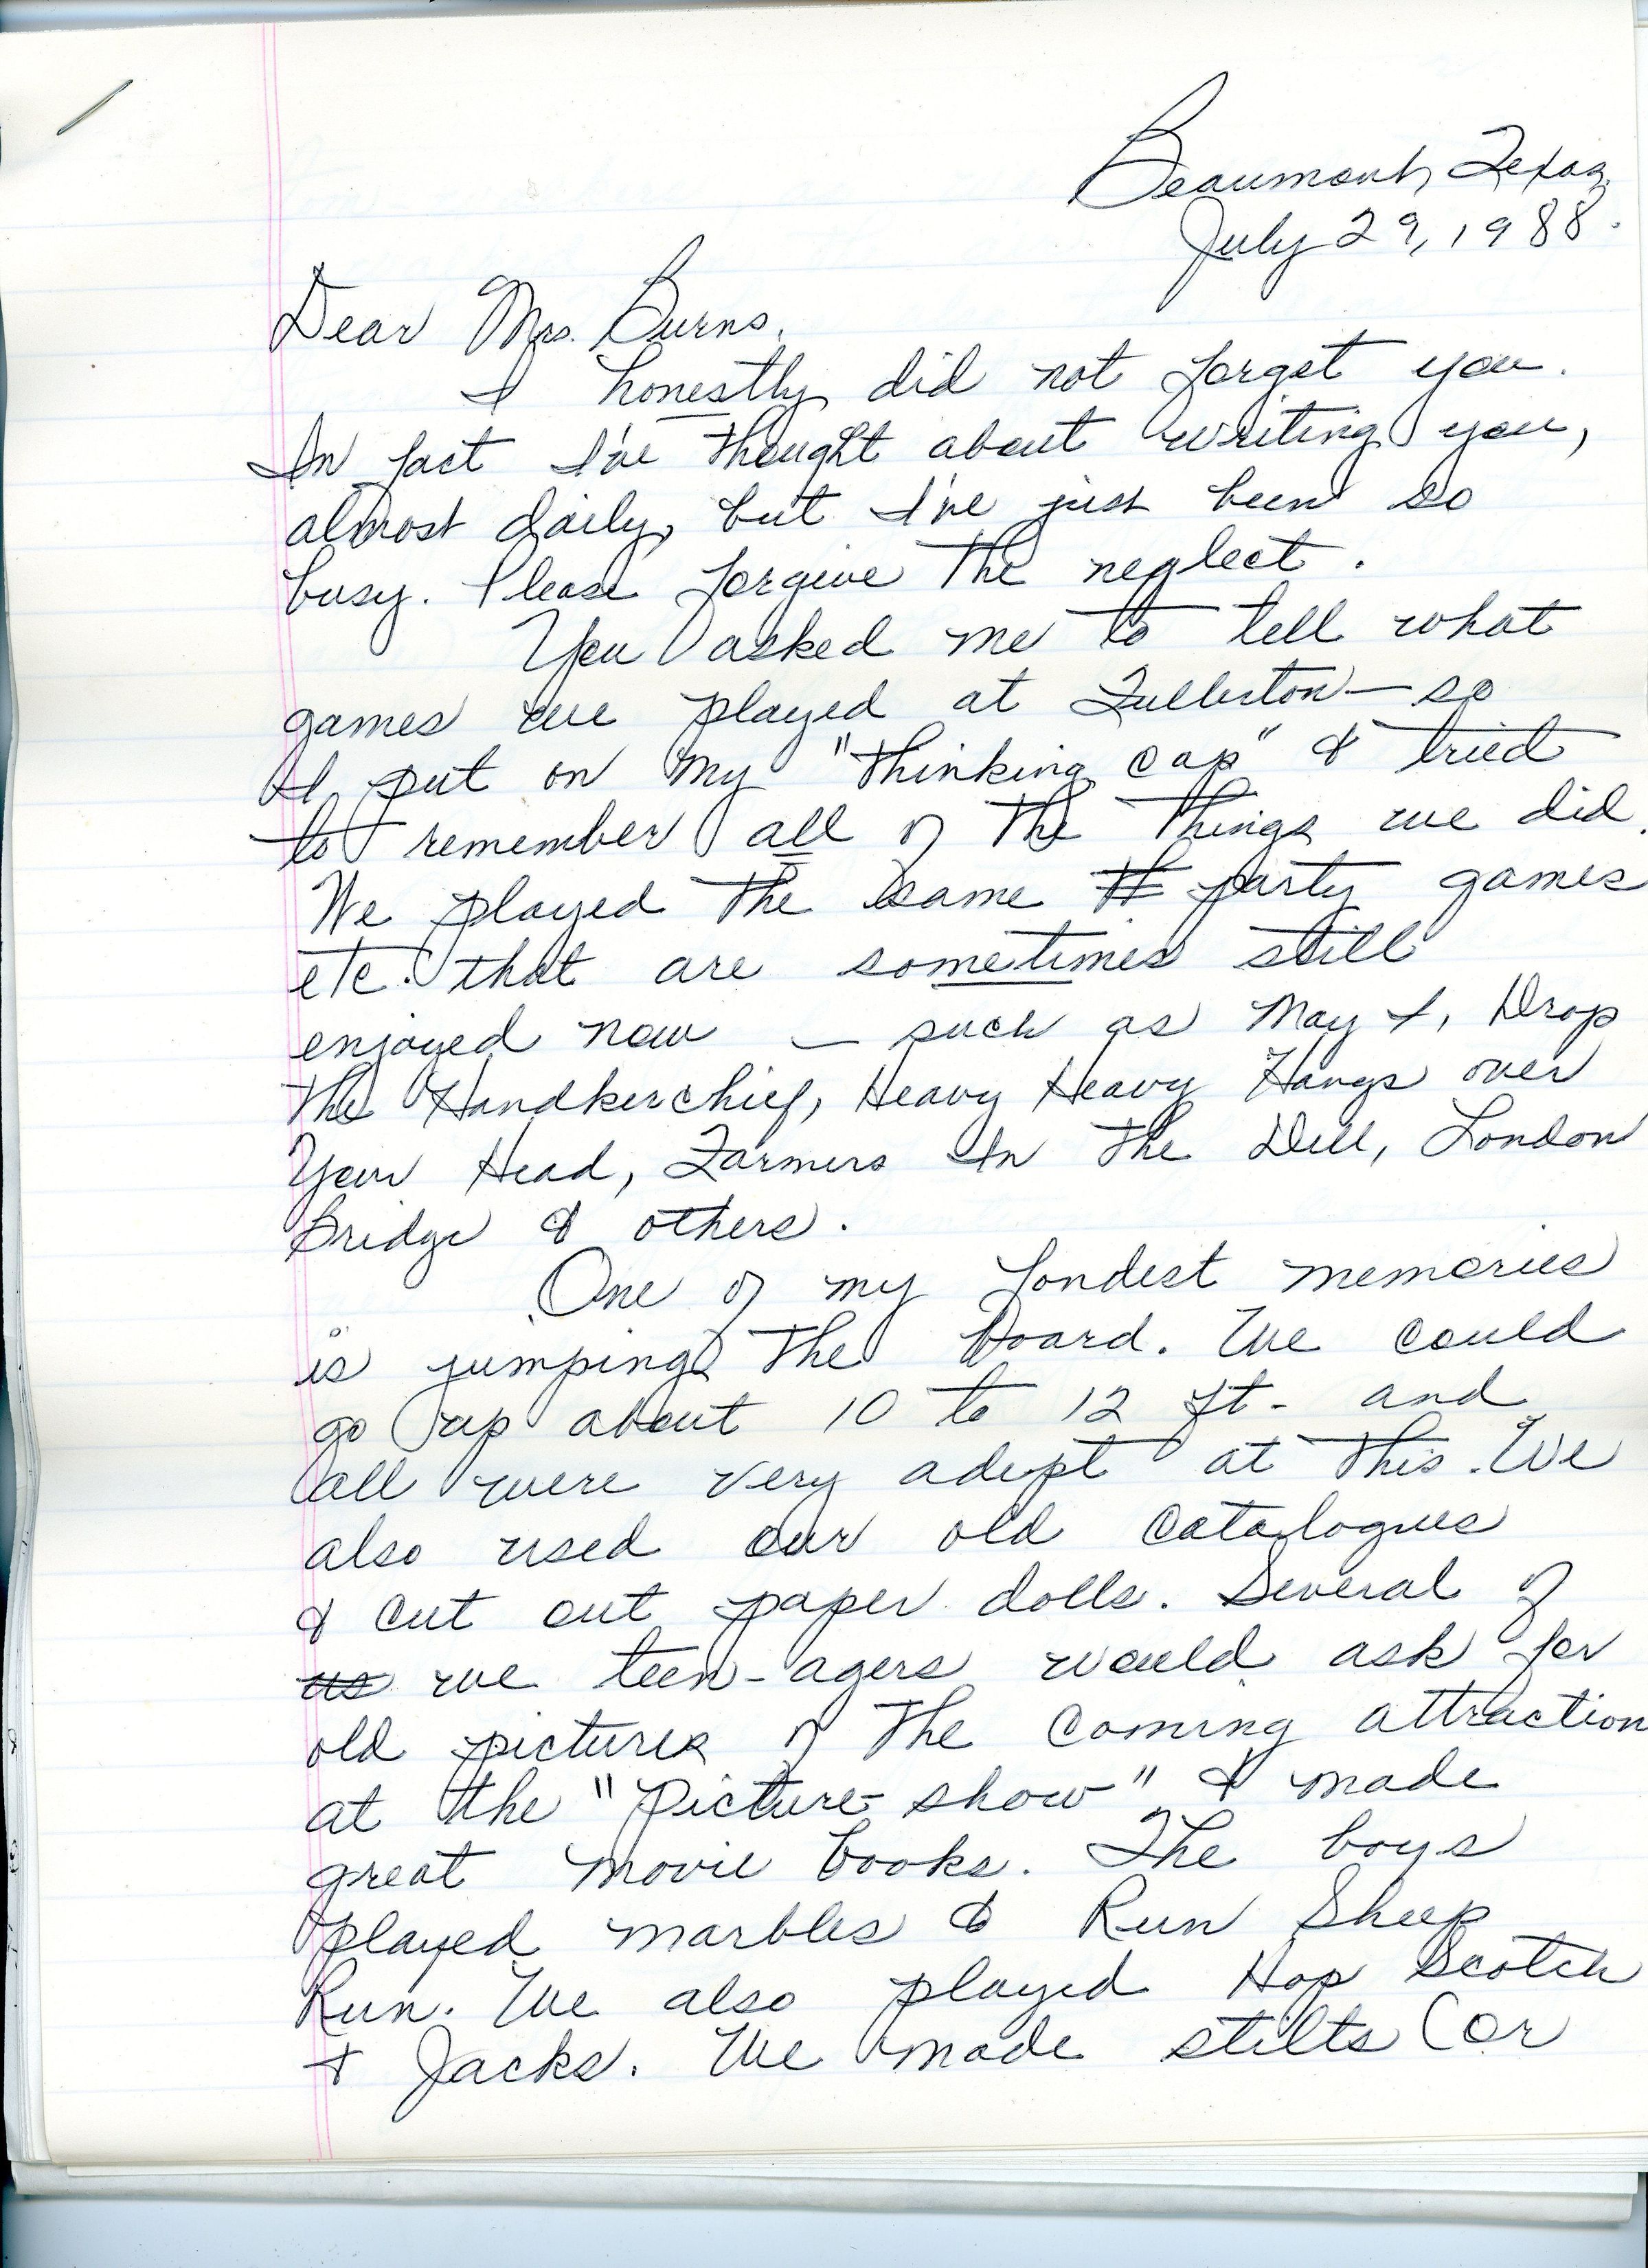 Beaumont, Texas.
July 29, 1988.
Dear Mrs. Burns,
I honestly did not forget you.
In fact I've thought about writing you,
almost daily, but I've just been so
busy. Please forgive the neglect.
You asked me to tell what
games we played at Fullerton — so
I put on my "thinking cap" & tried
to remember all of the things we did.
We played the same th party games
etc. that are sometimes still
enjoyed now — such as May I, Drop
the Handkerchief, Heavy Heavy Hangs over
Your Head, Farmers In the Dell, London
Bridge & others.
One of my fondest memories
is jumping the board. We could
go up about 10 to 12 ft - and
all were very adept at this. We
also used our old catalogues
& cut out paper dolls. Several of
us we teen-agers would ask for
old pictures of the coming attraction
at the "Picture show" & made
great movie books. The boys
played marbles & Run Sheep
Run. We also played Hop Scotch
& Jacks. We made stilts (or